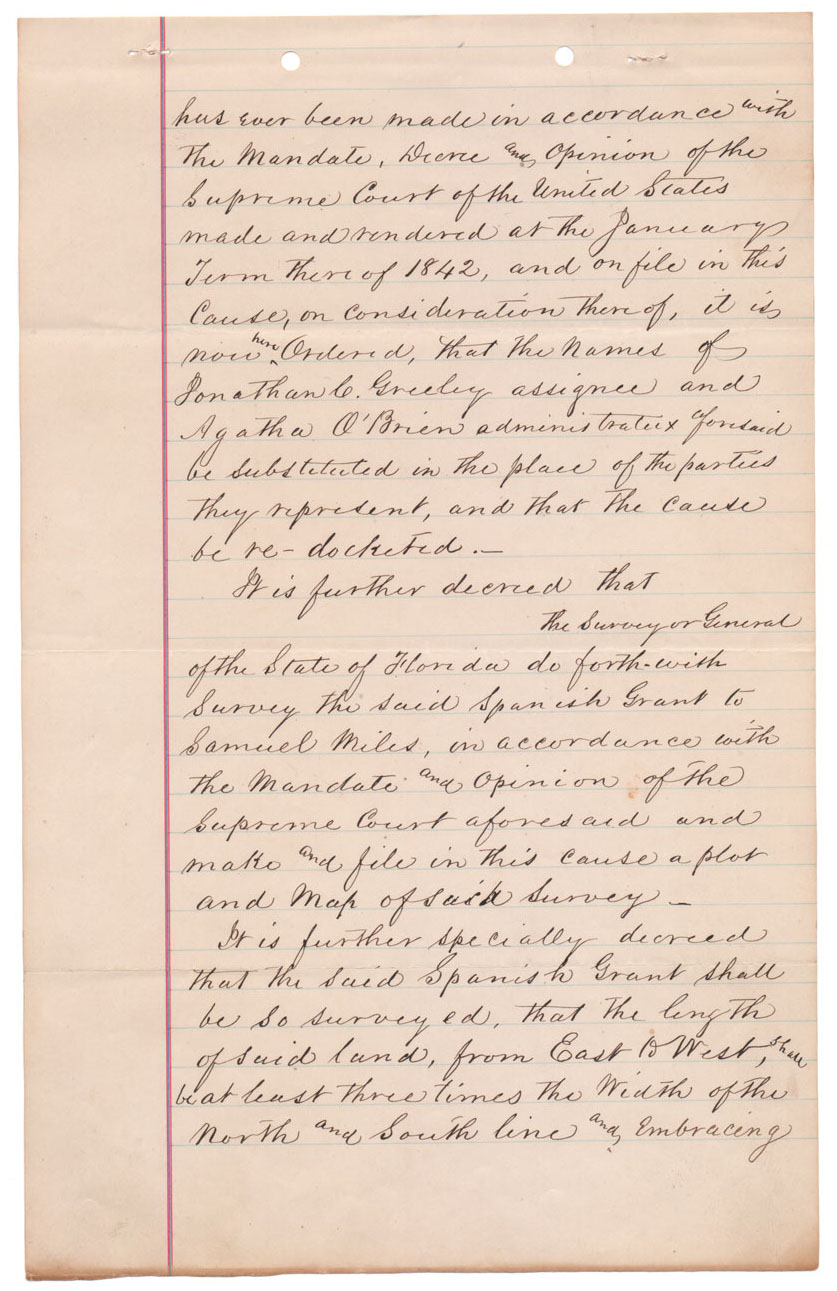 has ever been made in accordance with
the Mandate, Decree and Opinion of the
Supreme Court of the United States
made and rendered at the January
Term there of 1842, and on file in this
Cause, on consideration there of, it is
now here Ordered, that the Names of
Jonathan C. Greeley assignee and
Agatha O'Brien administratrix aforesaid
be substituted in the place of the parties
they represent, and that the cause
be re-docketed.—
It is further decreed that
the Surveyor General
of the State of Florida do forth-with
Survey the said Spanish Grant to
Samuel Miles, in accordance with
the Mandate and Opinion of the
Supreme Court aforesaid and
make and file in this cause a plot
and Map of said Survey —
It is further specially decreed
that the said Spanish Grant shall
be so surveyed, that the length
of said land, from East to West, shall
be at least three times the Width of the
North and South line and Embracing